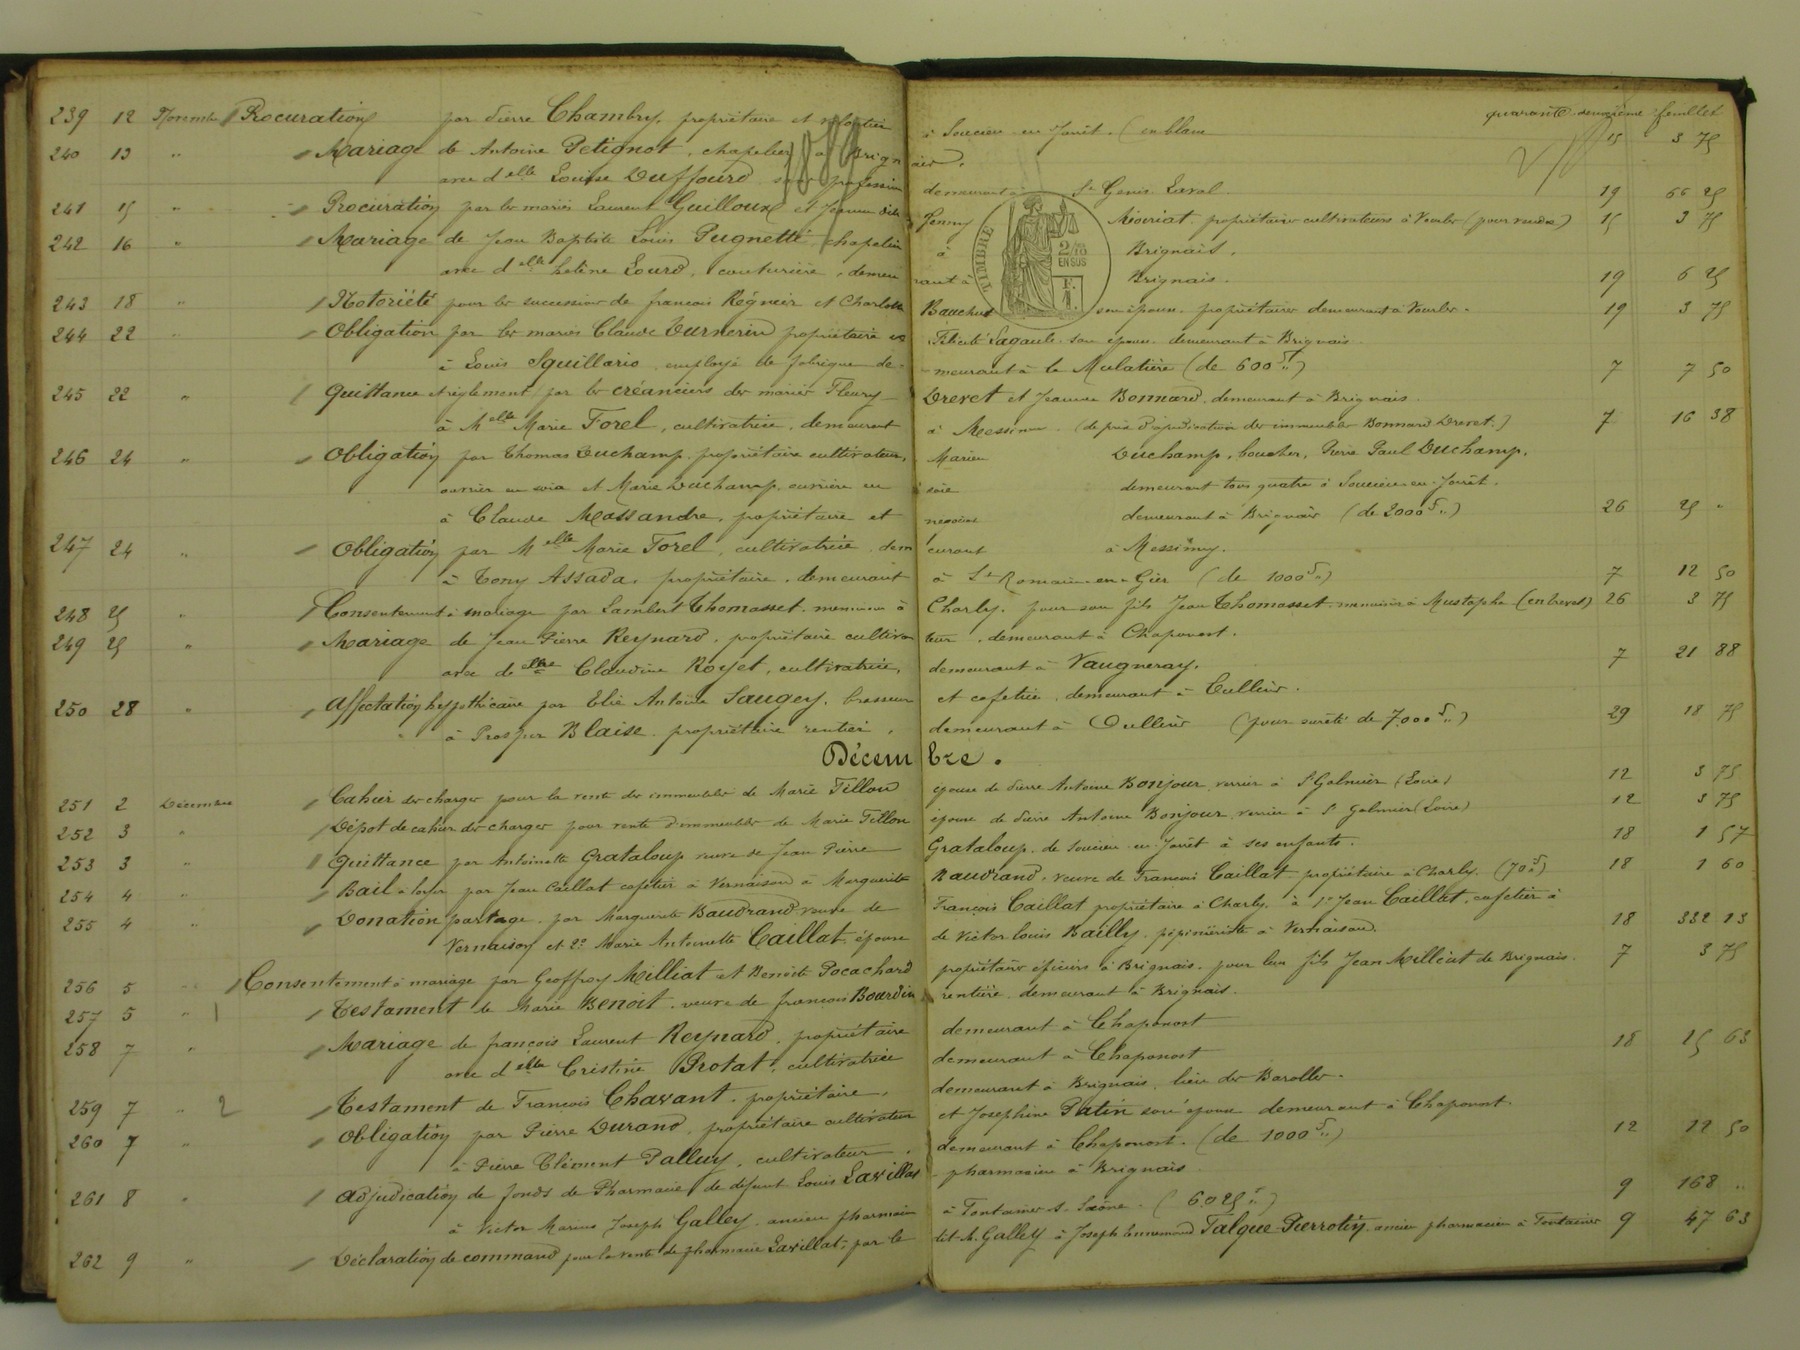 quarante deuxième feuillet
239 12 Novembre Procuration par Pierre Chambry, propriétaire et à Soucieu-en-Jarrêt. (en blanc 15 3 75
1884
240 13 " Mariage de Antoine Petignot, chapelier, à Brignais.
avec delle Louise Duffourd sans profession demeurant à St Genis Laval 19 66 25
241 15 " Procuration par les mariés Laurent Guilloux et Jeanne dite Jenny Mouriat propriétaires cultivateurs à Vourles (pour vendre) 15 3 75
242 16 " Mariage de Jean Baptiste Louis Pugnetté chapelier à Brignais.
avec delle helène Lourd, couturière, demeurant à Brignais. 19 6 25
TIMBRE 2/10 EN SUS F. 1.
243 18 " Notoriété pour la succession de françois Régnier et Charlotte Bauchut son épouse, propriétaires demeurant à Vourles. 19 3 75
244 22 " Obligation par les mariés Claude Turnerin propriétaire et Félicité Lagaule son épouse demeurant à Brignais
à Louis Squillario employé de fabrique demeurant à la Mulatière (de 600f") 7 7 50
245 22 " Quittance et règlement par les créanciers des mariés Fleury Drevet et Jeanne Bonnard, demeurant à Brignais.
à Melle Marie Forel, cultivatrice, demeurant à Messimy. (de prix d'adjudication des immeubles Bonnard Drevet.) 7 16 38
246 24 " Obligation par Thomas Duchamp, propriétaire cultivateur, Marien Duchamp, boucher, Pierre Paul Duchamp,
ouvrier en soie et Marie Duchamp, ouvrière en soie demeurant tous quatre à Soucieu-en-Jarrêt.
à Claude Massandre, propriétaire et demeurant à Brignais (de 2000f") 26 25 "
247 24 " Obligation par Melle Marie Forel, cultivatrice, demeurant à Messimy.
à Tony Assada, propriétaire, demeurant à St Romain-en-Gier (de 1000f") 7 12 50
248 25 " Consentement à mariage par Lambert Thomasset, menuisier à Charly, pour son fils Jean Thomasset menuisier à Mustapha (en brevet) 26 3 75
249 25 " Mariage de Jean Pierre Reynard, propriétaire cultivateur, demeurant à Chaponost.
avec delle Claudine Royet, cultivatrice, demeurant à Vaugneray. 7 21 88
250 28 " Affectation hypothécaire par Elie Antoine Saugey, brasseur et cafetier, demeurant à Oullins.
à Prosper Blaise propriétaire rentier, demeurant à Oullins (pour sureté de 7.000f") 29 18 75
Décembre.
251 2 Décembre Cahier des charges pour la vente des immeubles de Marie Tillon épouse de Pierre Antoine Bonjour verrier à St Galmier (Loire) 12 3 75
252 3 " Dépot de cahier des charges pour vente d'immeubles de Marie Tillon épouse de Pierre Antoine Bonjour, verrier à St Galmier (Loire) 12 3 75
253 3 " Quittance par Antoinette Grataloup veuve de Jean Pierre Grataloup, de Soucieu-en-Jarrêt à ses enfants. 18 1 57
254 4 " Bail à loyer par Jean Caillat cafetier à Vernaison à Marguerite Baudrand, veuve de François Caillat propriétaire à Charly. (70f") 18 1 60
255 4 " Donation partage par Marguerite Baudrand veuve de François Caillat propriétaire à Charly. à 1° Jean Caillat, cafetier à
Vernaison et 2° Marie Antoinette Caillat, épouse de Victor Louis Bailly, pépiniériste à Vernaison. 18 332 13
256 5 " Consentement à mariage par Geoffroy Milliat et Benoite Pocachard propriétaires épiciers à Brignais, pour leur fils Jean Milliat de Brignais. 7 3 75
257 5 " 1 Testament de Marie Benoit, veuve de françois Bourdin rentière, demeurant à Brignais.
258 7 " Mariage de françois Laurent Reynard, propriétaire demeurant à Chaponost
avec delle Cristine Protat, cultivatrice demeurant à Chaponost 18 25 63
259 7 " 2 Testament de François Chavant, propriétaire, demeurant à Brignais, lieu des Barolles.
260 7 " Obligation par Pierre Durand, propriétaire cultivateur et Josephine Patin son épouse demeurant à Chaponost.
à Pierre Clément Palluy, cultivateur, demeurant à Chaponost. (de 1000f") 12 12 50
261 8 " Adjudication de fonds de Pharmacie de defunt Louis Lavillat pharmacien à Brignais
à Victor Marius Joseph Galley, ancien pharmacien à Fontaines s. Saône. (6025f") 9 168 "
262 9 " Déclaration de command pour la vente de pharmacie Lavillat, par le dit M. Galley à Joseph Ennemond Falque-Pierrotin, ancien pharmacien à Fontaines 9 47 63